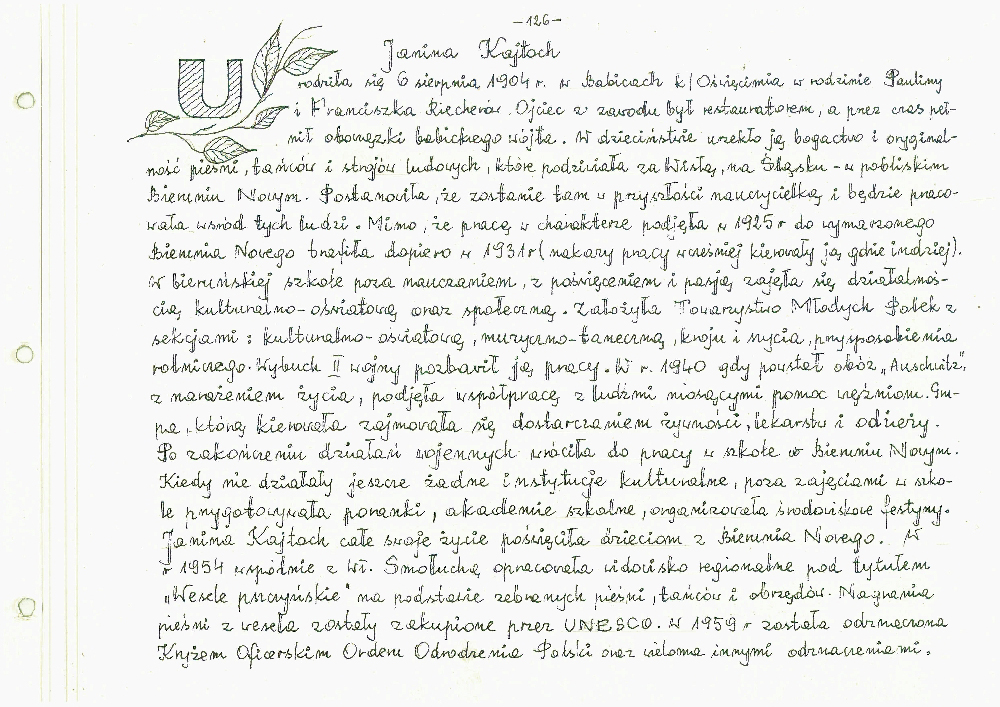 -126-
Janina Kajtoch
Urodziła się 6 sierpnia 1904 r. w Babicach k/Oświęcimia w rodzinie Pauliny
i Franciszka Riecherów. Ojciec z zawodu był restauratorem, a przez czas peł-
nił obowiązki babickiego wójta. W dzieciństwie urzekło ją bogactwo i oryginal-
ność pieśni, tańców i strojów ludowych, które podziwiała za Wisłą, na Śląsku - w pobliskim
Bieruniu Nowym. Postanowiła, że zostanie tam w przyszłości nauczycielką i będzie praco-
wała wśród tych ludzi. Mimo, że pracę w charakterze podjęła w 1925 r do wymarzonego
Bierunia Nowego trafiła dopiero w 1931 r (nakazy pracy wcześniej kierowały ją gdzie indziej).
W bieruńskiej szkole poza nauczaniem, z poświęceniem i pasją zajęła się działalnoś-
cią kulturalno-oświatową oraz społeczną. Założyła Towarzystwo Młodych Polek z
sekcjami: kulturalno-oświatową, muzyczno-taneczną, kroju i szycia, przysposobienia
rolniczego. Wybuch II wojny pozbawił ją pracy. W r. 1940 gdy powstał obóz „Auschwitz",
z narażeniem życia, podjęła współpracę z ludźmi niosącymi pomoc więźniom. Gru-
pa, którą kierowała zajmowała się dostarczaniem żywności, lekarstw i odzieży.
Po zakończeniu działań wojennych wróciła do pracy w szkole w Bieruniu Nowym.
Kiedy nie działały jeszcze żadne instytucje kulturalne, poza zajęciami w szko-
le przygotowywała poranki, akademie szkolne, organizowała środowiskowe festyny.
Janina Kajtoch całe swoje życie poświęciła dzieciom z Bierunia Nowego. W
r 1954 wspólnie z Wł. Smołuchą opracowała widowisko regionalne pod tytułem
„Wesele pszczyńskie" na podstawie zebranych pieśni, tańców i obrzędów. Nagrania
pieśni z wesela zostały zakupione przez UNESCO. W 1959 r została odznaczona
Krzyżem Oficerskim Orderu Odrodzenia Polski oraz wieloma innymi odznaczeniami.